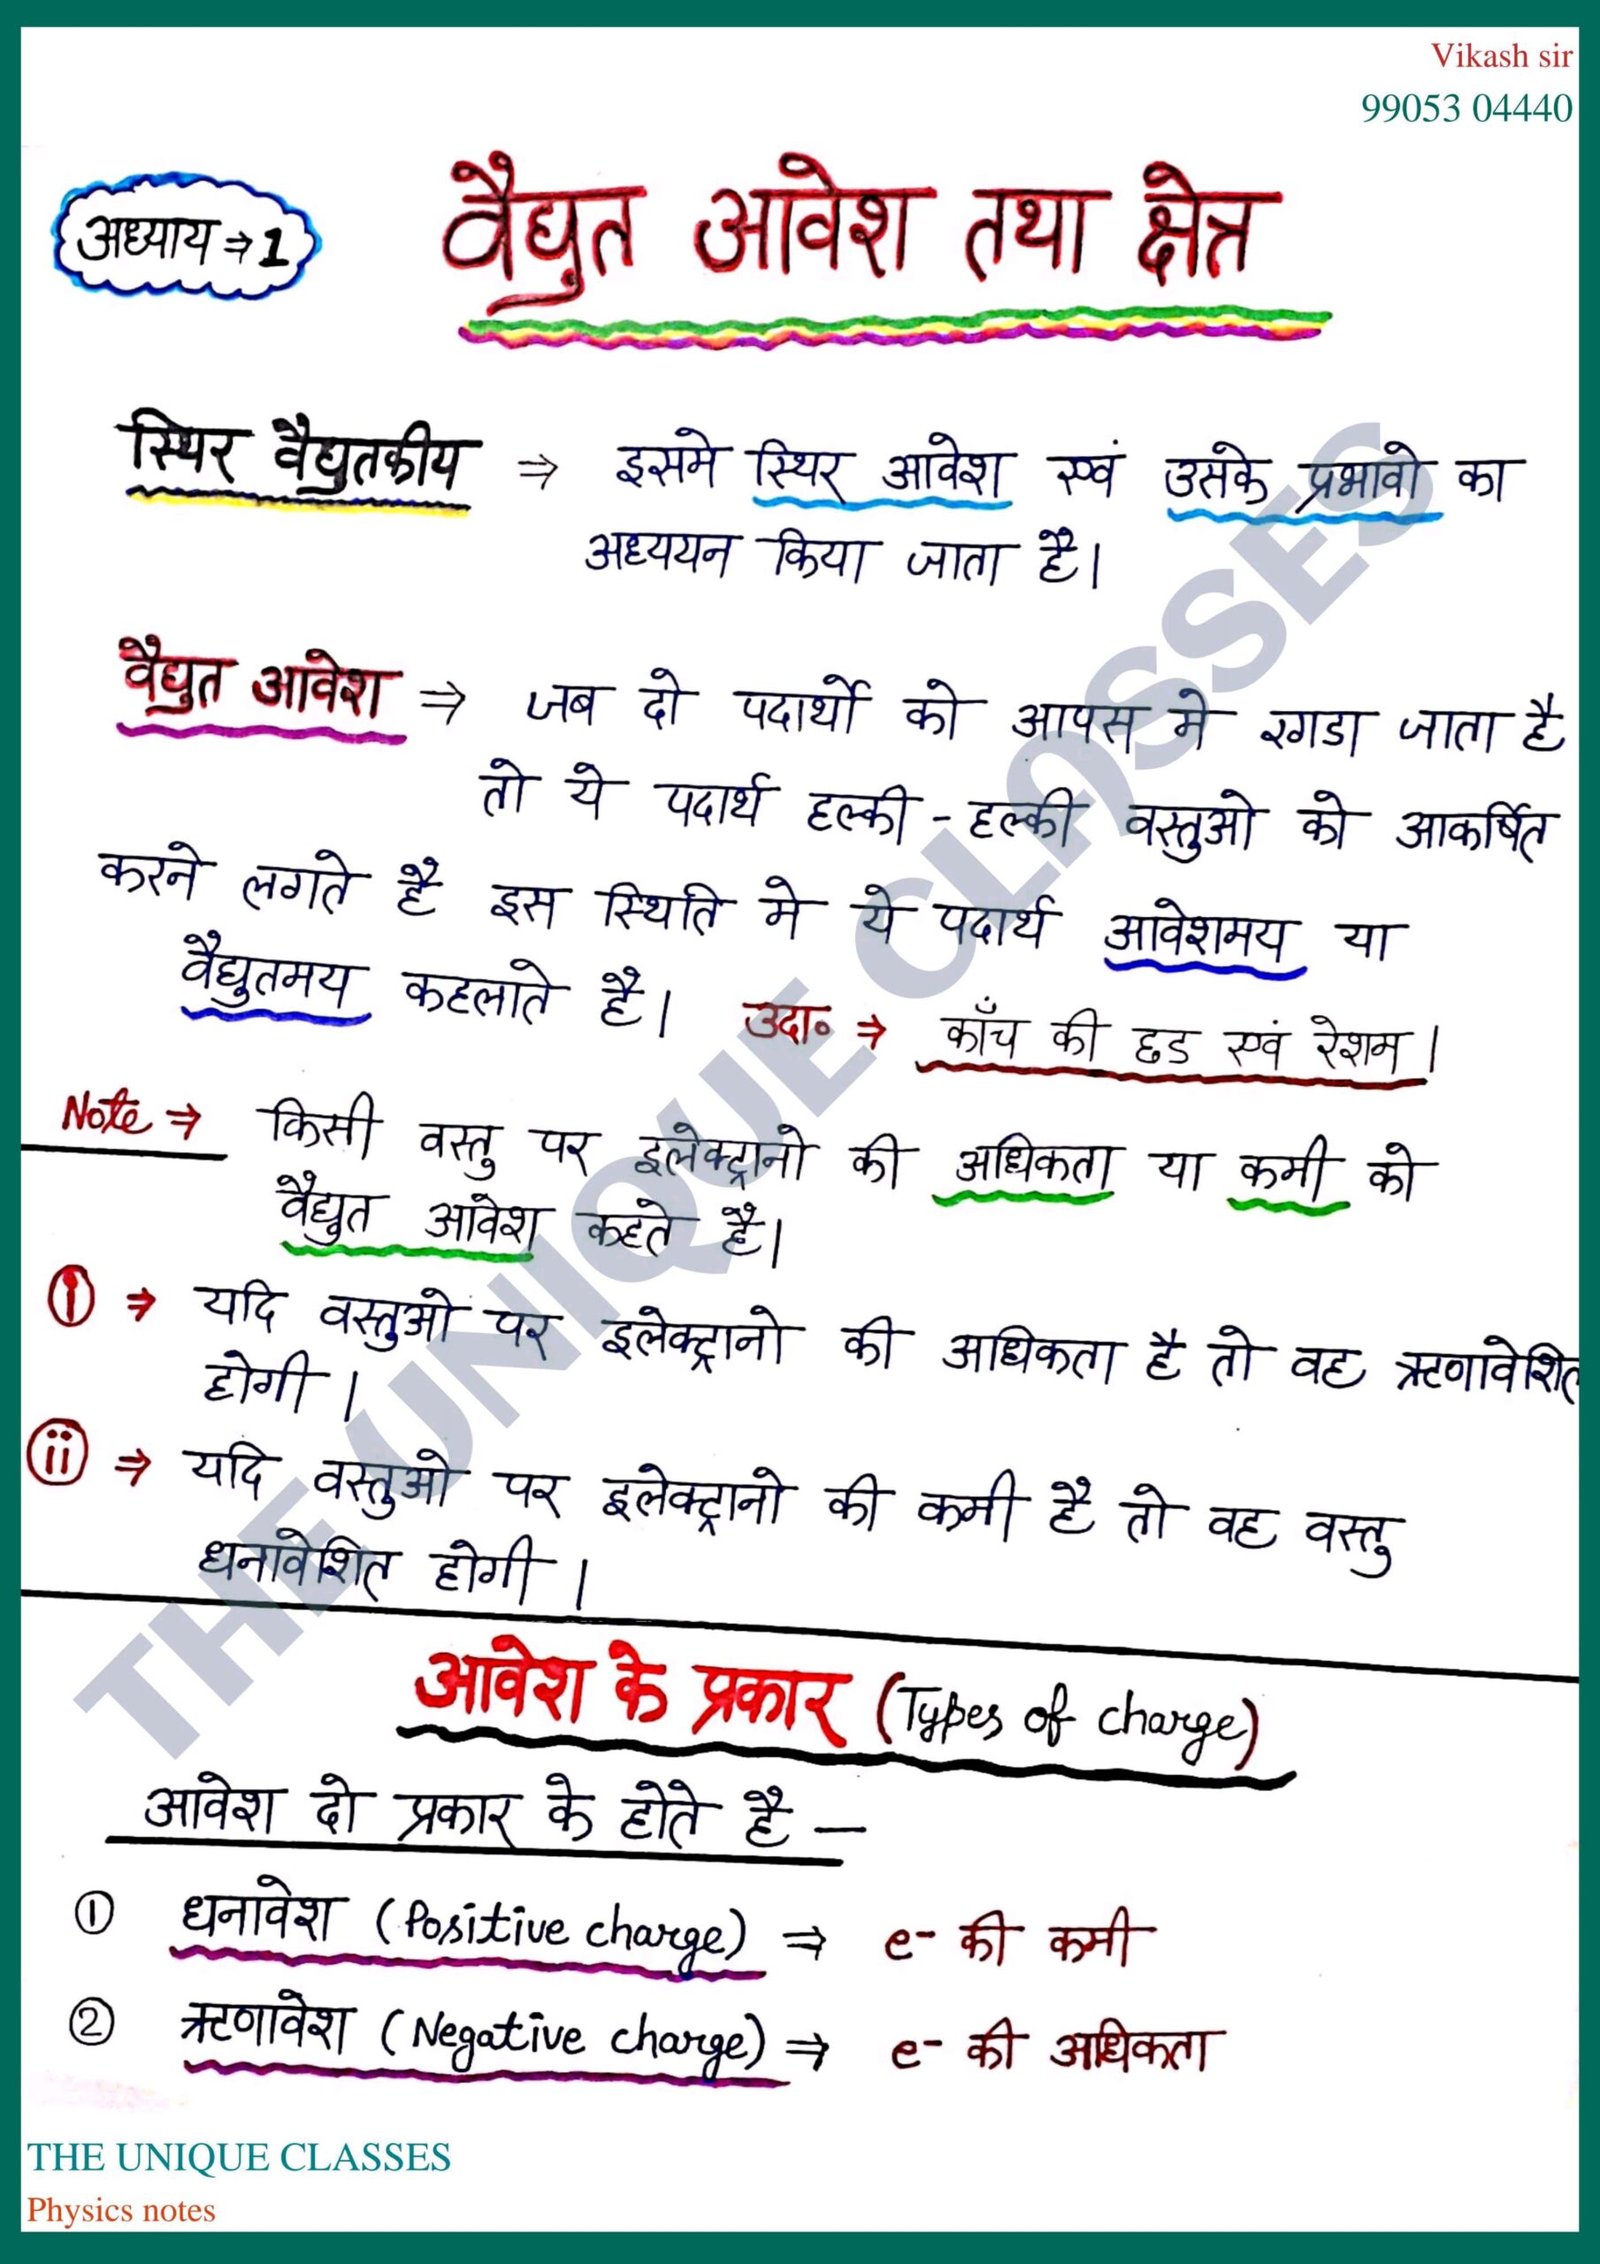 Vikash sir
99053 04440
अध्याय ⇒ 1
वैद्युत आवेश तथा क्षेत्र
स्थिर वैद्युतकीय ⇒ इसमे स्थिर आवेश एवं उसके प्रभावो का
अध्ययन किया जाता है।
वैद्युत आवेश ⇒ जब दो पदार्थो को आपस मे रगडा जाता है
तो ये पदार्थ हल्की - हल्की वस्तुओ को आकर्षित
करने लगते है इस स्थिति मे ये पदार्थ आवेशमय या
वैद्युतमय कहलाते है। उदा० ⇒ काँच की छड एवं रेशम।
Note ⇒ किसी वस्तु पर इलेक्ट्रानो की अधिकता या कमी को
वैद्युत आवेश कहते है।
i ⇒ यदि वस्तुओ पर इलेक्ट्रानो की अधिकता है तो वह ऋणावेशित
होगी।
ii ⇒ यदि वस्तुओ पर इलेक्ट्रानो की कमी है तो वह वस्तु
धनावेशित होगी।
आवेश के प्रकार (Types of charge)
आवेश दो प्रकार के होते है –
① धनावेश (Positive charge) ⇒ e- की कमी
② ऋणावेश (Negative charge) ⇒ e- की अधिकता
THE UNIQUE CLASSES
Physics notes
THE UNIQUE CLASSES